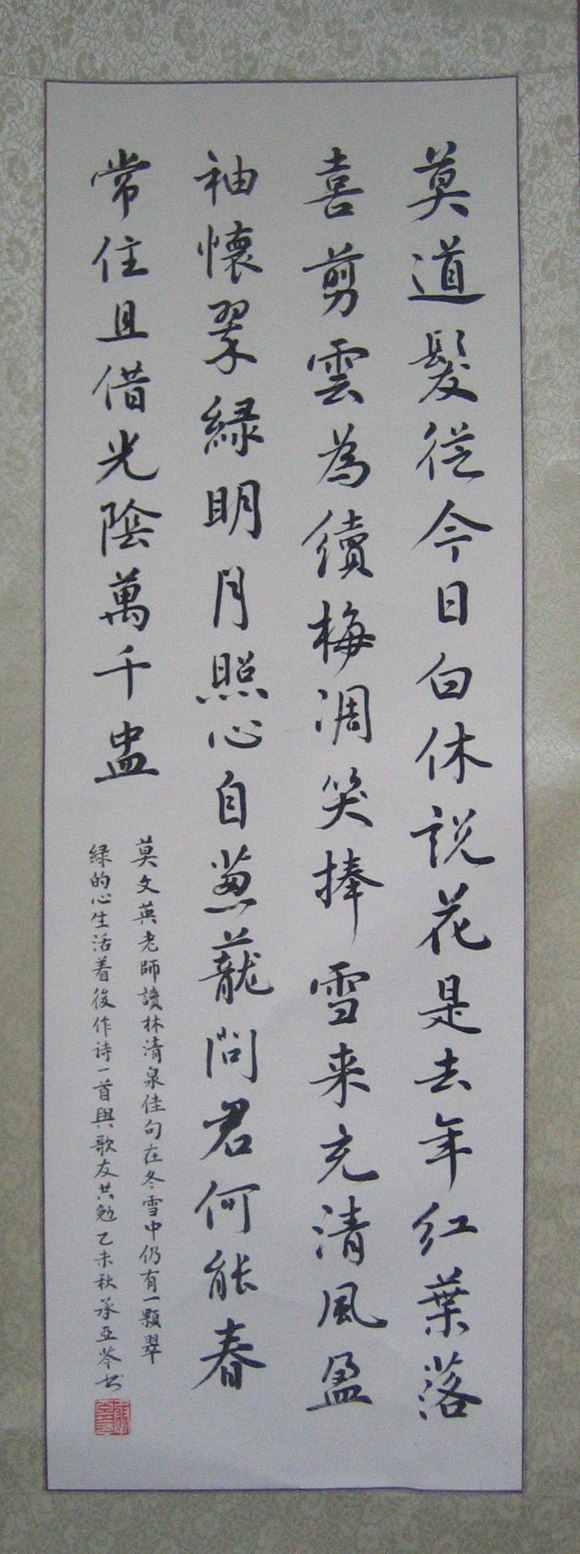 莫道髮從今日白休說花是去年紅葉落
喜剪雲為續梅凋笑捧雪来充清風盈
袖懷翠緑明月照心自葱蘢問君何能春
常住且借光陰萬千盅
莫文英老師讀林清泉佳句在冬雪中仍有一顆翠
緑的心生活着後作诗一首與歌友共勉乙未秋承亞芩书